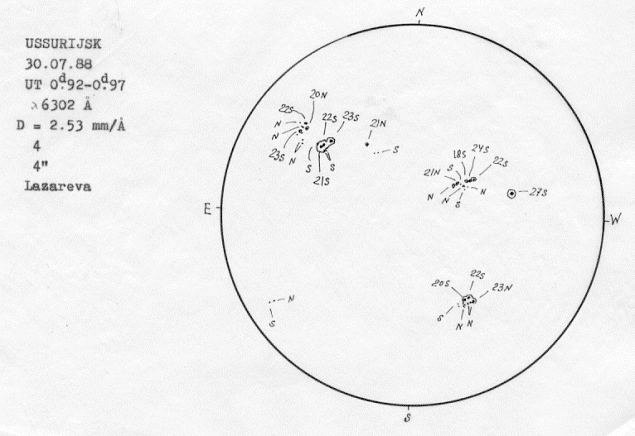 USSURIJSK
30.07.88
UT 0ᵈ.92-0ᵈ.97
λ 6302 Å
D = 2.53 mm/Å
4
4"
Lazareva
N
20N
22S
N
N
23S
N
22S
23S
S
S
21S
21N
S
18S
24S
22S
S
21N
N
N
S
N
27S
E
W
22S
20S
23N
S
N
N
N
S
S